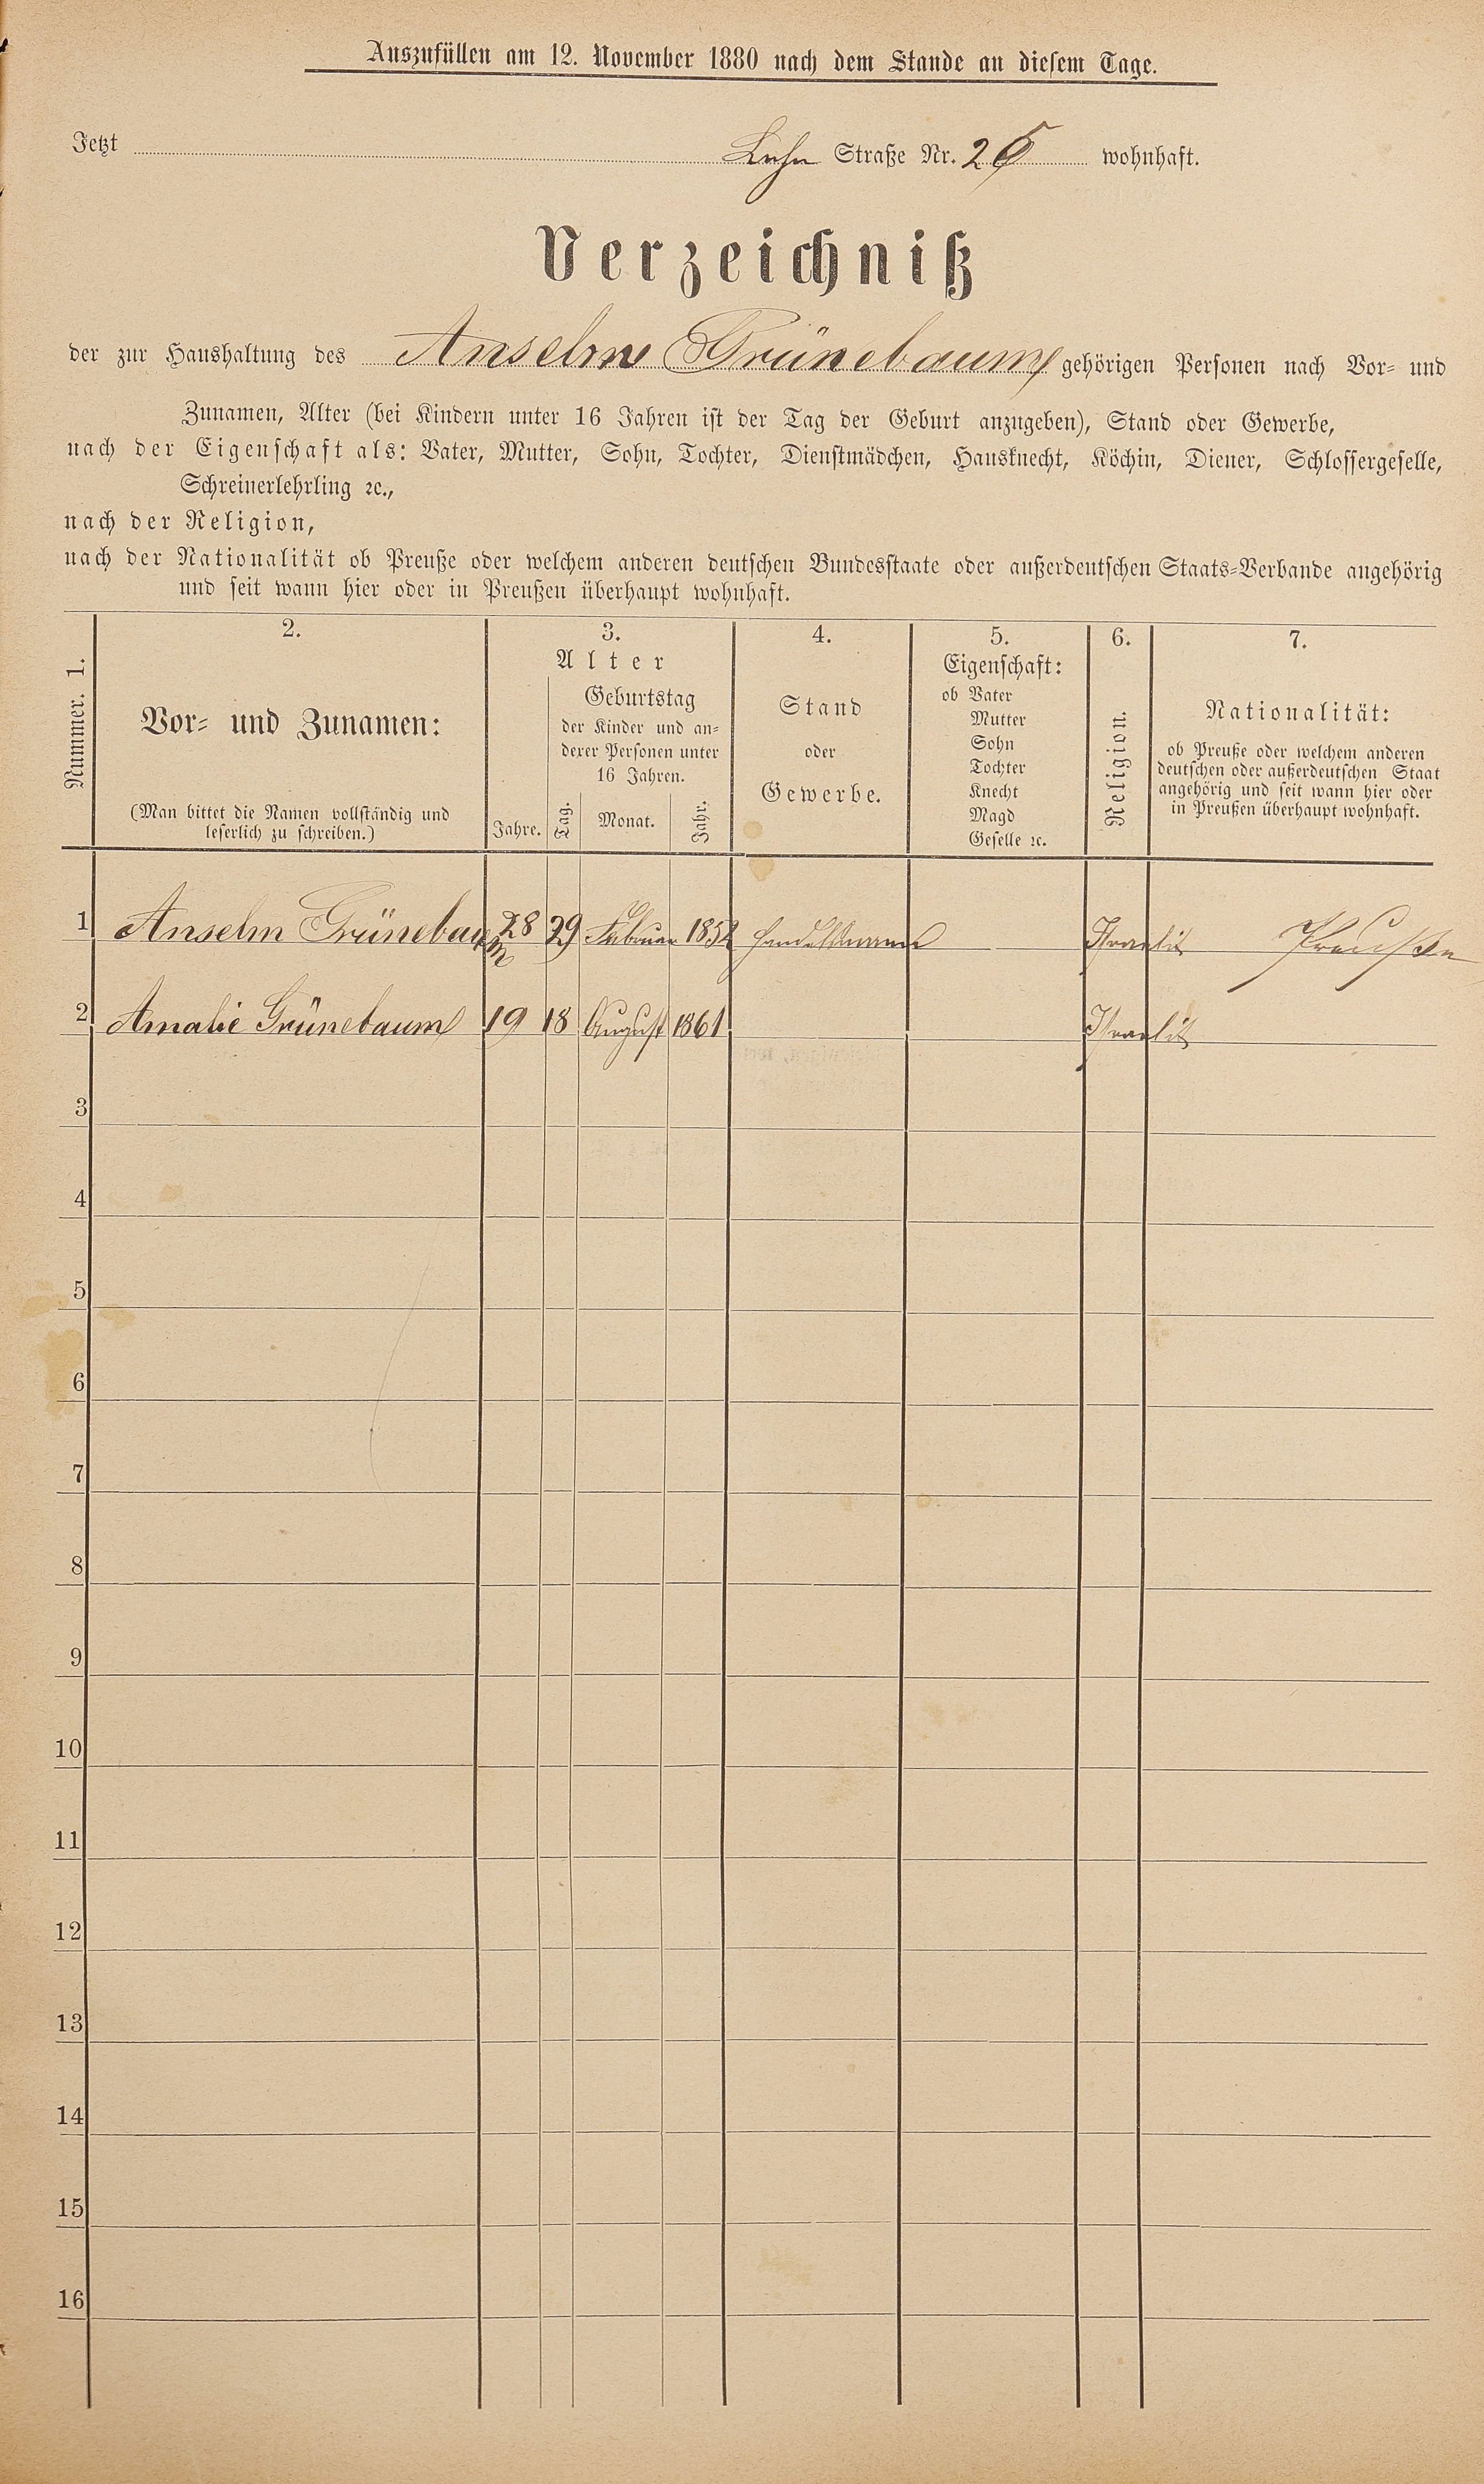 Auszufüllen am 12. November 1880 nach dem Stande an diesem Tage.
Jetzt Lahn Straße Nr. 26 wohnhaft.
Verzeichniß
der zur Haushaltung des Anselm Grünebaum gehörigen Personen nach Vor- und
Zunamen, Alter (bei Kindern unter 16 Jahren ist der Tag der Geburt anzugeben), Stand oder Gewerbe,
nach der Eigenschaft als: Vater, Mutter, Sohn, Tochter, Dienstmädchen, Hausknecht, Köchin, Diener, Schlossergeselle,
Schreinerlehrling ꝛc.,
nach der Religion,
nach der Nationalität ob Preuße oder welchem anderen deutschen Bundesstaate oder außerdeutschen Staats-Verbande angehörig
und seit wann hier oder in Preußen überhaupt wohnhaft.
Nummer. 1.
2.
Vor- und Zunamen:
(Man bittet die Namen vollständig und
leserlich zu schreiben.)
3.
Alter
Jahre.
Geburtstag
der Kinder und an-
derer Personen unter
16 Jahren.
Tag. Monat. Jahr.
4.
Stand
oder
Gewerbe.
5.
Eigenschaft:
ob Vater
Mutter
Sohn
Tochter
Knecht
Magd
Geselle ꝛc.
6.
Religion.
7.
Nationalität:
ob Preuße oder welchem anderen
deutschen oder außerdeutschen Staat
angehörig und seit wann hier oder
in Preußen überhaupt wohnhaft.
1 Anselm Grünebaum 28 29 Februar 1852 Handelsmann Israelit Preußen
2 Amalie Grünebaum 19 18 August 1861 Israelit
3
4
5
6
7
8
9
10
11
12
13
14
15
16